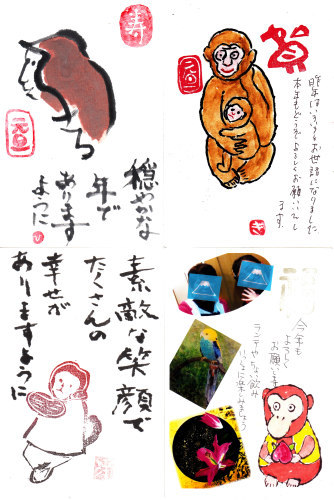 寿
穏やかな
年で
あります
ように
賀
昨年はいろいろお世話になりました
本年もどうぞよろしくお願いいたし
ます
素敵な笑顔で
たくさんの
幸せが
ありますように
福
今年も
よろしく
お願いします
ランチや飲み
いっしょに楽しみましょう